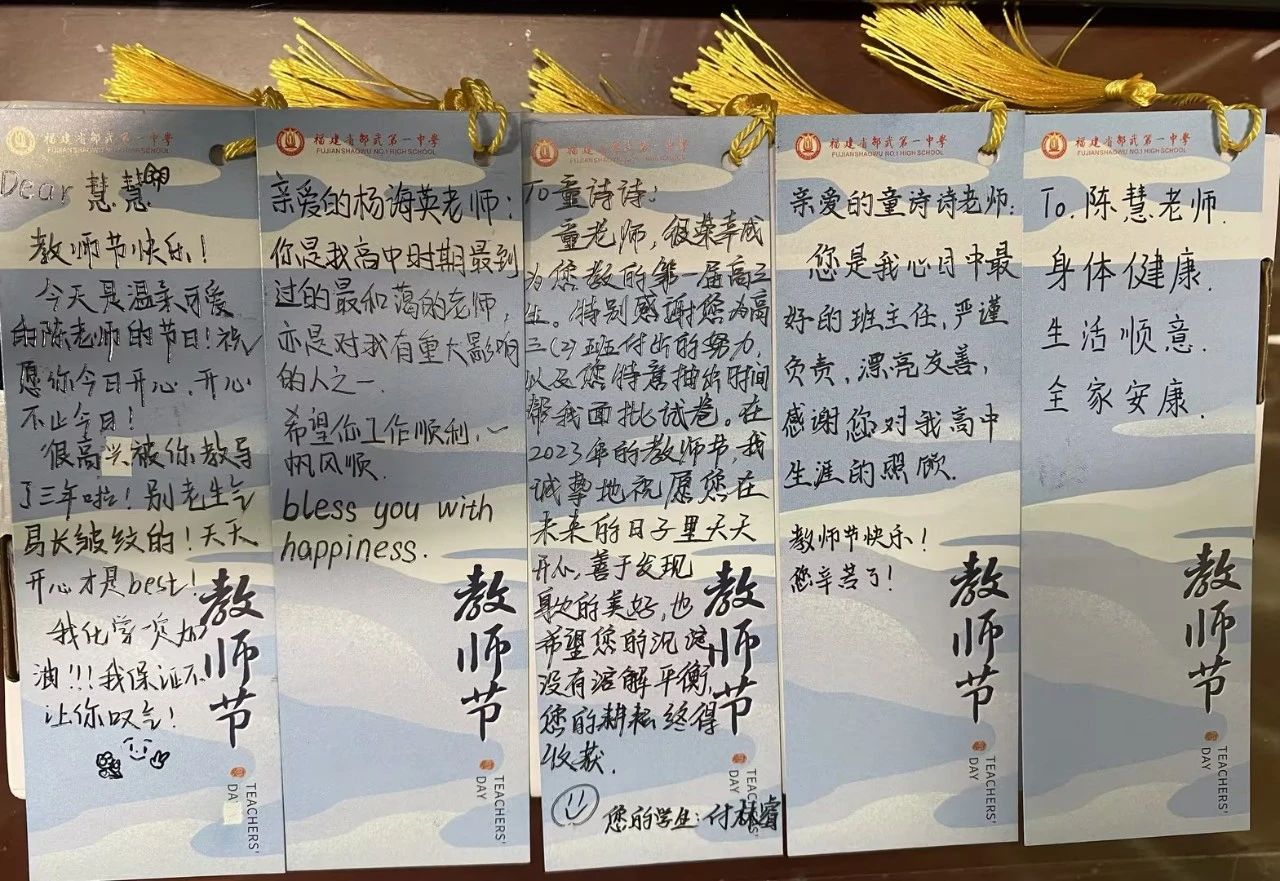 福建省邵武第一中學
FUJIANSHAOWU NO.1 HIGH SCHOOL
Dear 慧慧
教师节快乐！
今天是温柔可爱
的陈老师的节日！祝
愿你今日开心，开心
不止今日！
很高兴被你教导
了三年啦！别老生气
易长皱纹的！天天
开心才是best！
我化学一定加
油!!!我保证不
让你叹气！
教师节
TEACHERS'
DA
福建省邵武第一中學
FUJIANSHAOWU NO.1 HIGH SCHOOL
亲爱的杨海英老师：
你是我高中时期最到
过的最和蔼的老师，
亦是对我有重大影响
的人之一.
希望你工作顺利，一
帆风顺.
bless you with
happiness.
教师节
TEACHERS'
DAY
福建省邵武第一中學
FUJIANSHAOWU NO.1 HIGH SCHOOL
To 童诗诗：
童老师，很荣幸成
为您教的第一届高三
生。特别感谢您为高
三(2)班付出的努力，
以及您特意抽出时间
帮我面批试卷。在
2023年的教师节，我
诚挚地祝愿您在
未来的日子里天天
开心，善于发现
身边的美好，也
希望您的沉淀
没有溶解平衡，
您的耕耘终得
收获.
您的学生：付林睿
教师节
TEACHERS'
DAY
福建省邵武第一中學
FUJIANSHAOWU NO.1 HIGH SCHOOL
亲爱的童诗诗老师：
您是我心目中最
好的班主任，严谨
负责，漂亮友善，
感谢您对我高中
生涯的照顾.
教师节快乐！
您辛苦了！
教师节
TEACHERS'
DAY
福建省邵武第一中學
FUJIANSHAOWU NO.1 HIGH SCHOOL
To. 陈慧老师.
身体健康.
生活顺意.
全家安康.
教师节
TEACHERS'
DAY